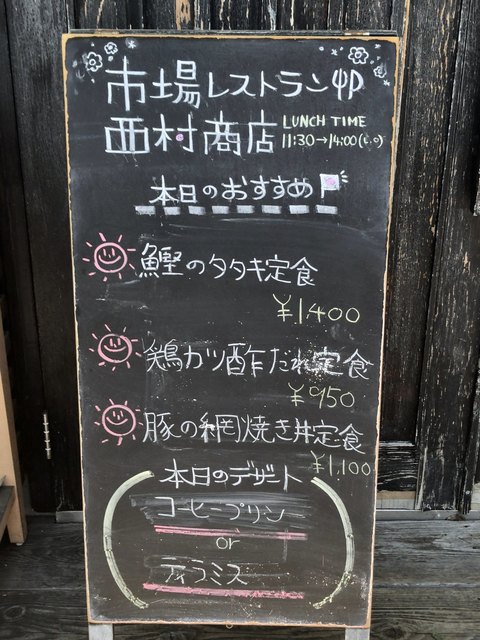 市場レストラン
西村商店
LUNCH TIME
11:30→14:00(L.O)
本日のおすすめ
鰹のタタキ定食
¥1.400
鶏カツ酢だれ定食
¥950
豚の網焼き丼定食
¥1,100
本日のデザート
コーヒープリン
or
ティラミス